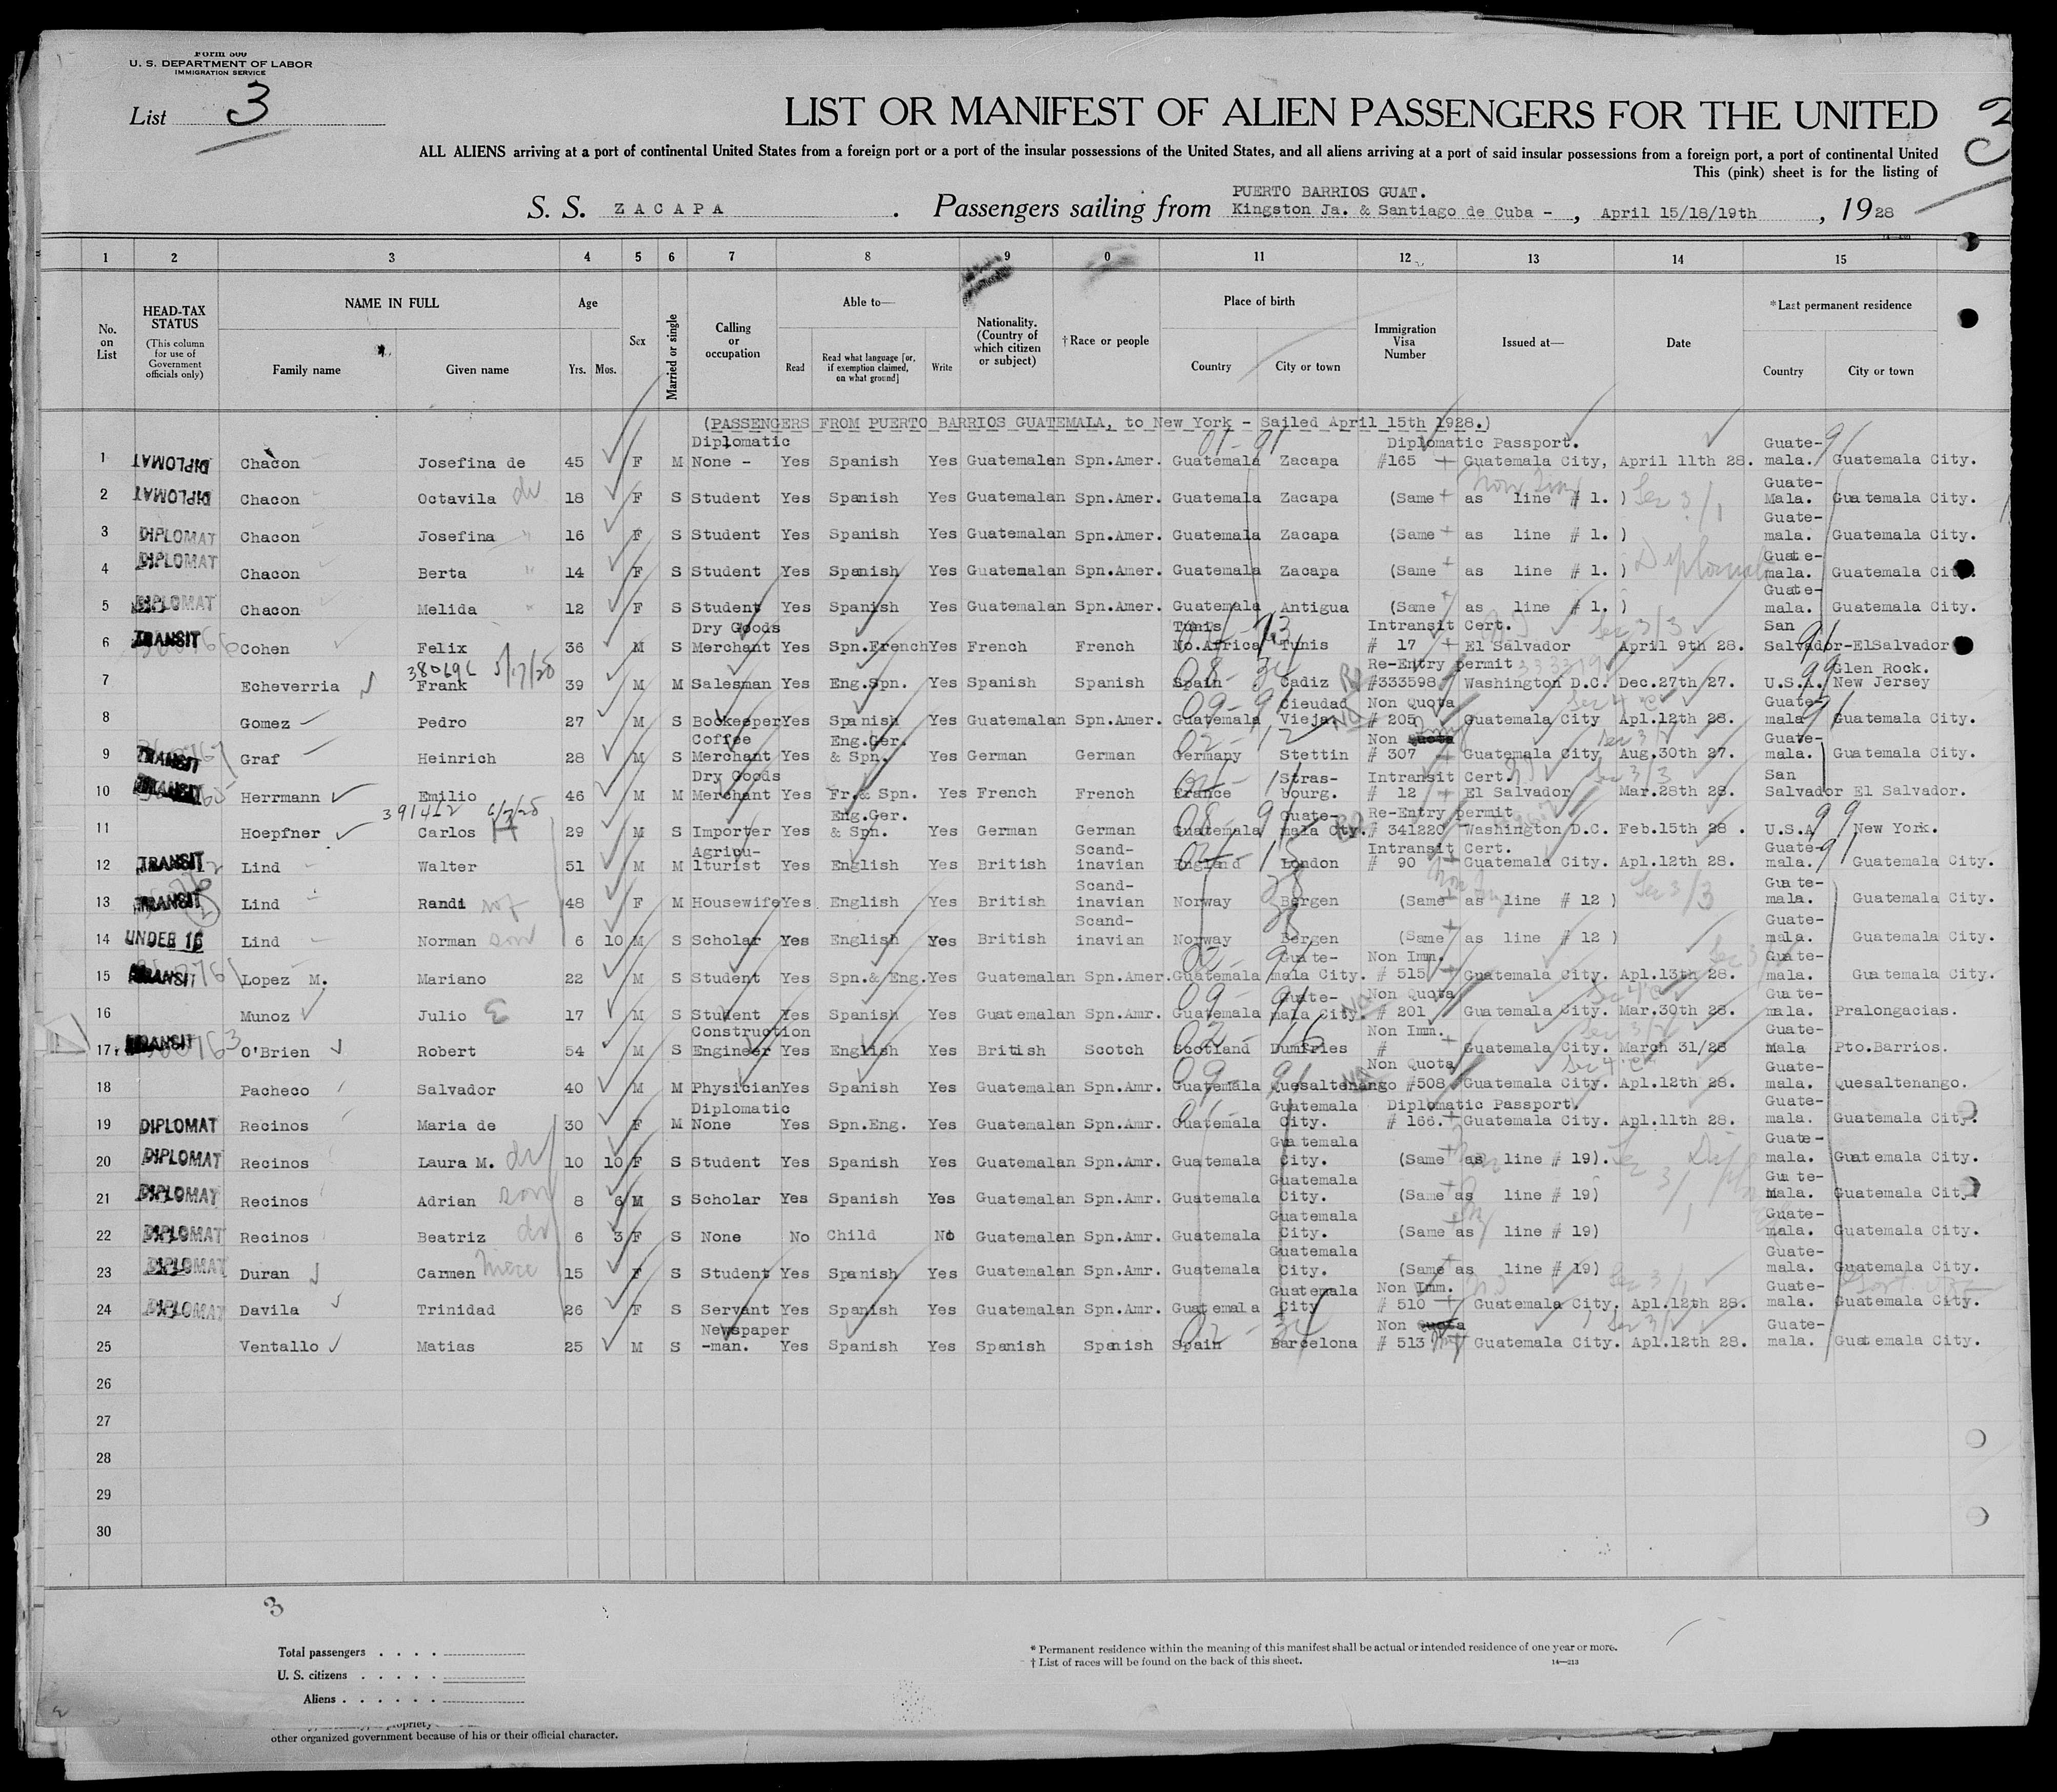 Form 500
U. S. DEPARTMENT OF LABOR
IMMIGRATION SERVICE
List 3
LIST OR MANIFEST OF ALIEN PASSENGERS FOR THE UNITED
ALL ALIENS arriving at a port of continental United States from a foreign port or a port of the insular possessions of the United States, and all aliens arriving at a port of said insular possessions from a foreign port, a port of continental United
This (pink) sheet is for the listing of
PUERTO BARRIOS GUAT.
S. S. ZACAPA. Passengers sailing from Kingston Ja. & Santiago de Cuba - , April 15/18/19th, 1928
1 2 3 4 5 6 7 8 9 0 11 12 13 14 15
No. on List
HEAD-TAX STATUS (This column for use of Government officials only)
NAME IN FULL Family name Given name
Age Yrs. Mos.
Sex
Married or single
Calling or occupation
Able to— Read Read what language [or, if exemption claimed, on what ground] Write
Nationality. (Country of which citizen or subject)
† Race or people
Place of birth Country City or town
Immigration Visa Number
Issued at—
Date
*Last permanent residence Country City or town
(PASSENGERS FROM PUERTO BARRIOS GUATEMALA, to New York - Sailed April 15th 1928.)
1 DIPLOMAT Chacon Josefina de 45 F M Diplomatic None - Yes Spanish Yes Guatemalan Spn.Amer. Guatemala Zacapa Diplomatic Passport. #165 Guatemala City, April 11th 28. Guate-mala. Guatemala City.
2 DIPLOMAT Chacon Octavila 18 F S Student Yes Spanish Yes Guatemalan Spn.Amer. Guatemala Zacapa (Same as line # 1. ) Guate-Mala. Guatemala City.
3 DIPLOMAT Chacon Josefina 16 F S Student Yes Spanish Yes Guatemalan Spn.Amer. Guatemala Zacapa (Same as line # 1. ) Guate-mala. Guatemala City.
4 DIPLOMAT Chacon Berta 14 F S Student Yes Spanish Yes Guatemalan Spn.Amer. Guatemala Zacapa (Same as line # 1. ) Diplomat Guate-mala. Guatemala City.
5 DIPLOMAT Chacon Melida 12 F S Student Yes Spanish Yes Guatemalan Spn.Amer. Guatemala Antigua (Same as line # 1. ) Guate-mala. Guatemala City.
6 TRANSIT Cohen Felix 36 M S Dry Goods Merchant Yes Spn.French Yes French French Tunis No.Africa Tunis Intransit Cert. # 17 El Salvador April 9th 28. San Salvador-ElSalvador
7 Echeverria Frank 39 M M Salesman Yes Eng.Spn. Yes Spanish Spanish Spain Cadiz Re-Entry permit #333598 Washington D.C. Dec.27th 27. U.S.A. Glen Rock. New Jersey
8 Gomez Pedro 27 M S Bookeeper Yes Spanish Yes Guatemalan Spn.Amer. Guatemala Cieudad Vieja Non Quota # 205 Guatemala City Apl.12th 28. Guate-mala Guatemala City.
9 TRANSIT Graf Heinrich 28 M S Coffee Merchant Yes Eng.Ger. & Spn. Yes German German Germany Stettin Non Quota # 307 Guatemala City Aug.30th 27. Guate-mala. Guatemala City.
10 TRANSIT Herrmann Emilio 46 M M Dry Goods Merchant Yes Fr.& Spn. Yes French French France Stras-bourg. Intransit Cert. # 12 El Salvador Mar.28th 28. San Salvador El Salvador.
11 Hoepfner Carlos H 29 M S Importer Yes Eng.Ger. & Spn. Yes German German Guatemala Guate-mala City. Re-Entry permit # 341220 Washington D.C. Feb.15th 28 . U.S.A New York.
12 TRANSIT Lind Walter 51 M M Agricu-lturist Yes English Yes British Scand-inavian England London Intransit Cert. # 90 Guatemala City. Apl.12th 28. Guate-mala. Guatemala City.
13 TRANSIT Lind Randi wf 48 F M Housewife Yes English Yes British Scand-inavian Norway Bergen (Same as line # 12 ) Sec 3/3 Guate-mala. Guatemala City.
14 UNDER 16 Lind Norman son 6 10 M S Scholar Yes English Yes British Scand-inavian Norway Bergen (Same as line # 12 ) Guate-mala. Guatemala City.
15 TRANSIT Lopez M. Mariano 22 M S Student Yes Spn.& Eng. Yes Guatemalan Spn.Amer. Guatemala Guate-mala City. Non Imm. # 515 Guatemala City. Apl.13th 28. Guate-mala. Guatemala City.
16 Munoz Julio E 17 M S Student Yes Spanish Yes Guatemalan Spn.Amr. Guatemala Guate-mala City. Non Quota # 201 Guatemala City. Mar.30th 28. Guate-mala. Pralongacias.
17. TRANSIT O'Brien Robert 54 M S Construction Engineer Yes English Yes British Scotch Scotland Dumfries Non Imm. # Guatemala City. March 31/28 Guate-Mala Pto.Barrios.
18 Pacheco Salvador 40 M M Physician Yes Spanish Yes Guatemalan Spn.Amr. Guatemala Quesaltenango Non Quota #508 Guatemala City. Apl.12th 28. Guate-mala. Quesaltenango.
19 DIPLOMAT Recinos Maria de 30 F M Diplomatic None Yes Spn.Eng. Yes Guatemalan Spn.Amr. Guatemala Guatemala City. Diplomatic Passport. # 166. Guatemala City. Apl.11th 28. Guate-mala. Guatemala City.
20 DIPLOMAT Recinos Laura M. 10 10 F S Student Yes Spanish Yes Guatemalan Spn.Amr. Guatemala Guatemala City. (Same as line # 19). Guate-mala. Guatemala City.
21 DIPLOMAT Recinos Adrian son 8 6 M S Scholar Yes Spanish Yes Guatemalan Spn.Amr. Guatemala Guatemala City. (Same as line # 19) Guate-Mala. Guatemala City
22 DIPLOMAT Recinos Beatriz 6 3 F S None No Child No Guatemalan Spn.Amr. Guatemala Guatemala City. (Same as line # 19) Guate-mala. Guatemala City.
23 DIPLOMAT Duran Carmen niece 15 F S Student Yes Spanish Yes Guatemalan Spn.Amr. Guatemala Guatemala City. (Same as line # 19) Guate-mala. Guatemala City.
24 DIPLOMAT Davila Trinidad 26 F S Servant Yes Spanish Yes Guatemalan Spn.Amr. Guatemala Guatemala City Non Imm. # 510 Guatemala City. Apl.12th 28. Guate-mala. Guatemala City.
25 Ventallo Matias 25 M S Newspaper -man. Yes Spanish Yes Spanish Spanish Spain Barcelona Non Quota # 513 Guatemala City. Apl.12th 28. Guate-mala. Guatemala City.
26
27
28
29
30
3
Total passengers . . . .
U. S. citizens . . . . .
Aliens . . . . . .
* Permanent residence within the meaning of this manifest shall be actual or intended residence of one year or more.
† List of races will be found on the back of this sheet.
14—213
other organized government because of his or their official character.